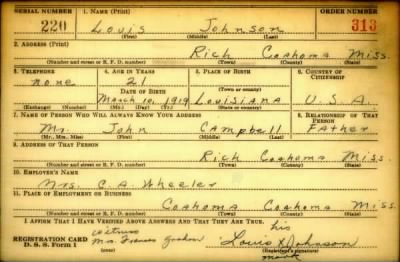 SERIAL NUMBER 1. NAME (Print) ORDER NUMBER
220 Louis Johnson 313
(First) (Middle) (Last)
2. ADDRESS (Print)
Rich Coahoma Miss.
(Number and street or R. F. D. number) (Town) (County) (State)
3. TELEPHONE 4. AGE IN YEARS 5. PLACE OF BIRTH 6. COUNTRY OF CITIZENSHIP
none 21
DATE OF BIRTH (Town or county)
March 10, 1919 Louisiana U.S.A.
(Exchange) (Number) (Mo.) (Day) (Yr.) (State or country)
7. NAME OF PERSON WHO WILL ALWAYS KNOW YOUR ADDRESS 8. RELATIONSHIP OF THAT PERSON
Mr. John Campbell Father
(Mr., Mrs., Miss) (First) (Middle) (Last)
9. ADDRESS OF THAT PERSON
Rich Coahoma Miss.
(Number and street or R. F. D. number) (Town) (County) (State)
10. EMPLOYER'S NAME
Mrs. C A Wheeler
11. PLACE OF EMPLOYMENT OR BUSINESS
Coahoma Coahoma Miss.
(Number and street or R. F. D. number) (Town) (County) (State)
I AFFIRM THAT I HAVE VERIFIED ABOVE ANSWERS AND THAT THEY ARE TRUE.
witness his
REGISTRATION CARD Mrs. Frances Louis X Johnson
D. S. S. Form 1 (over) (Registrant's signature)
mark